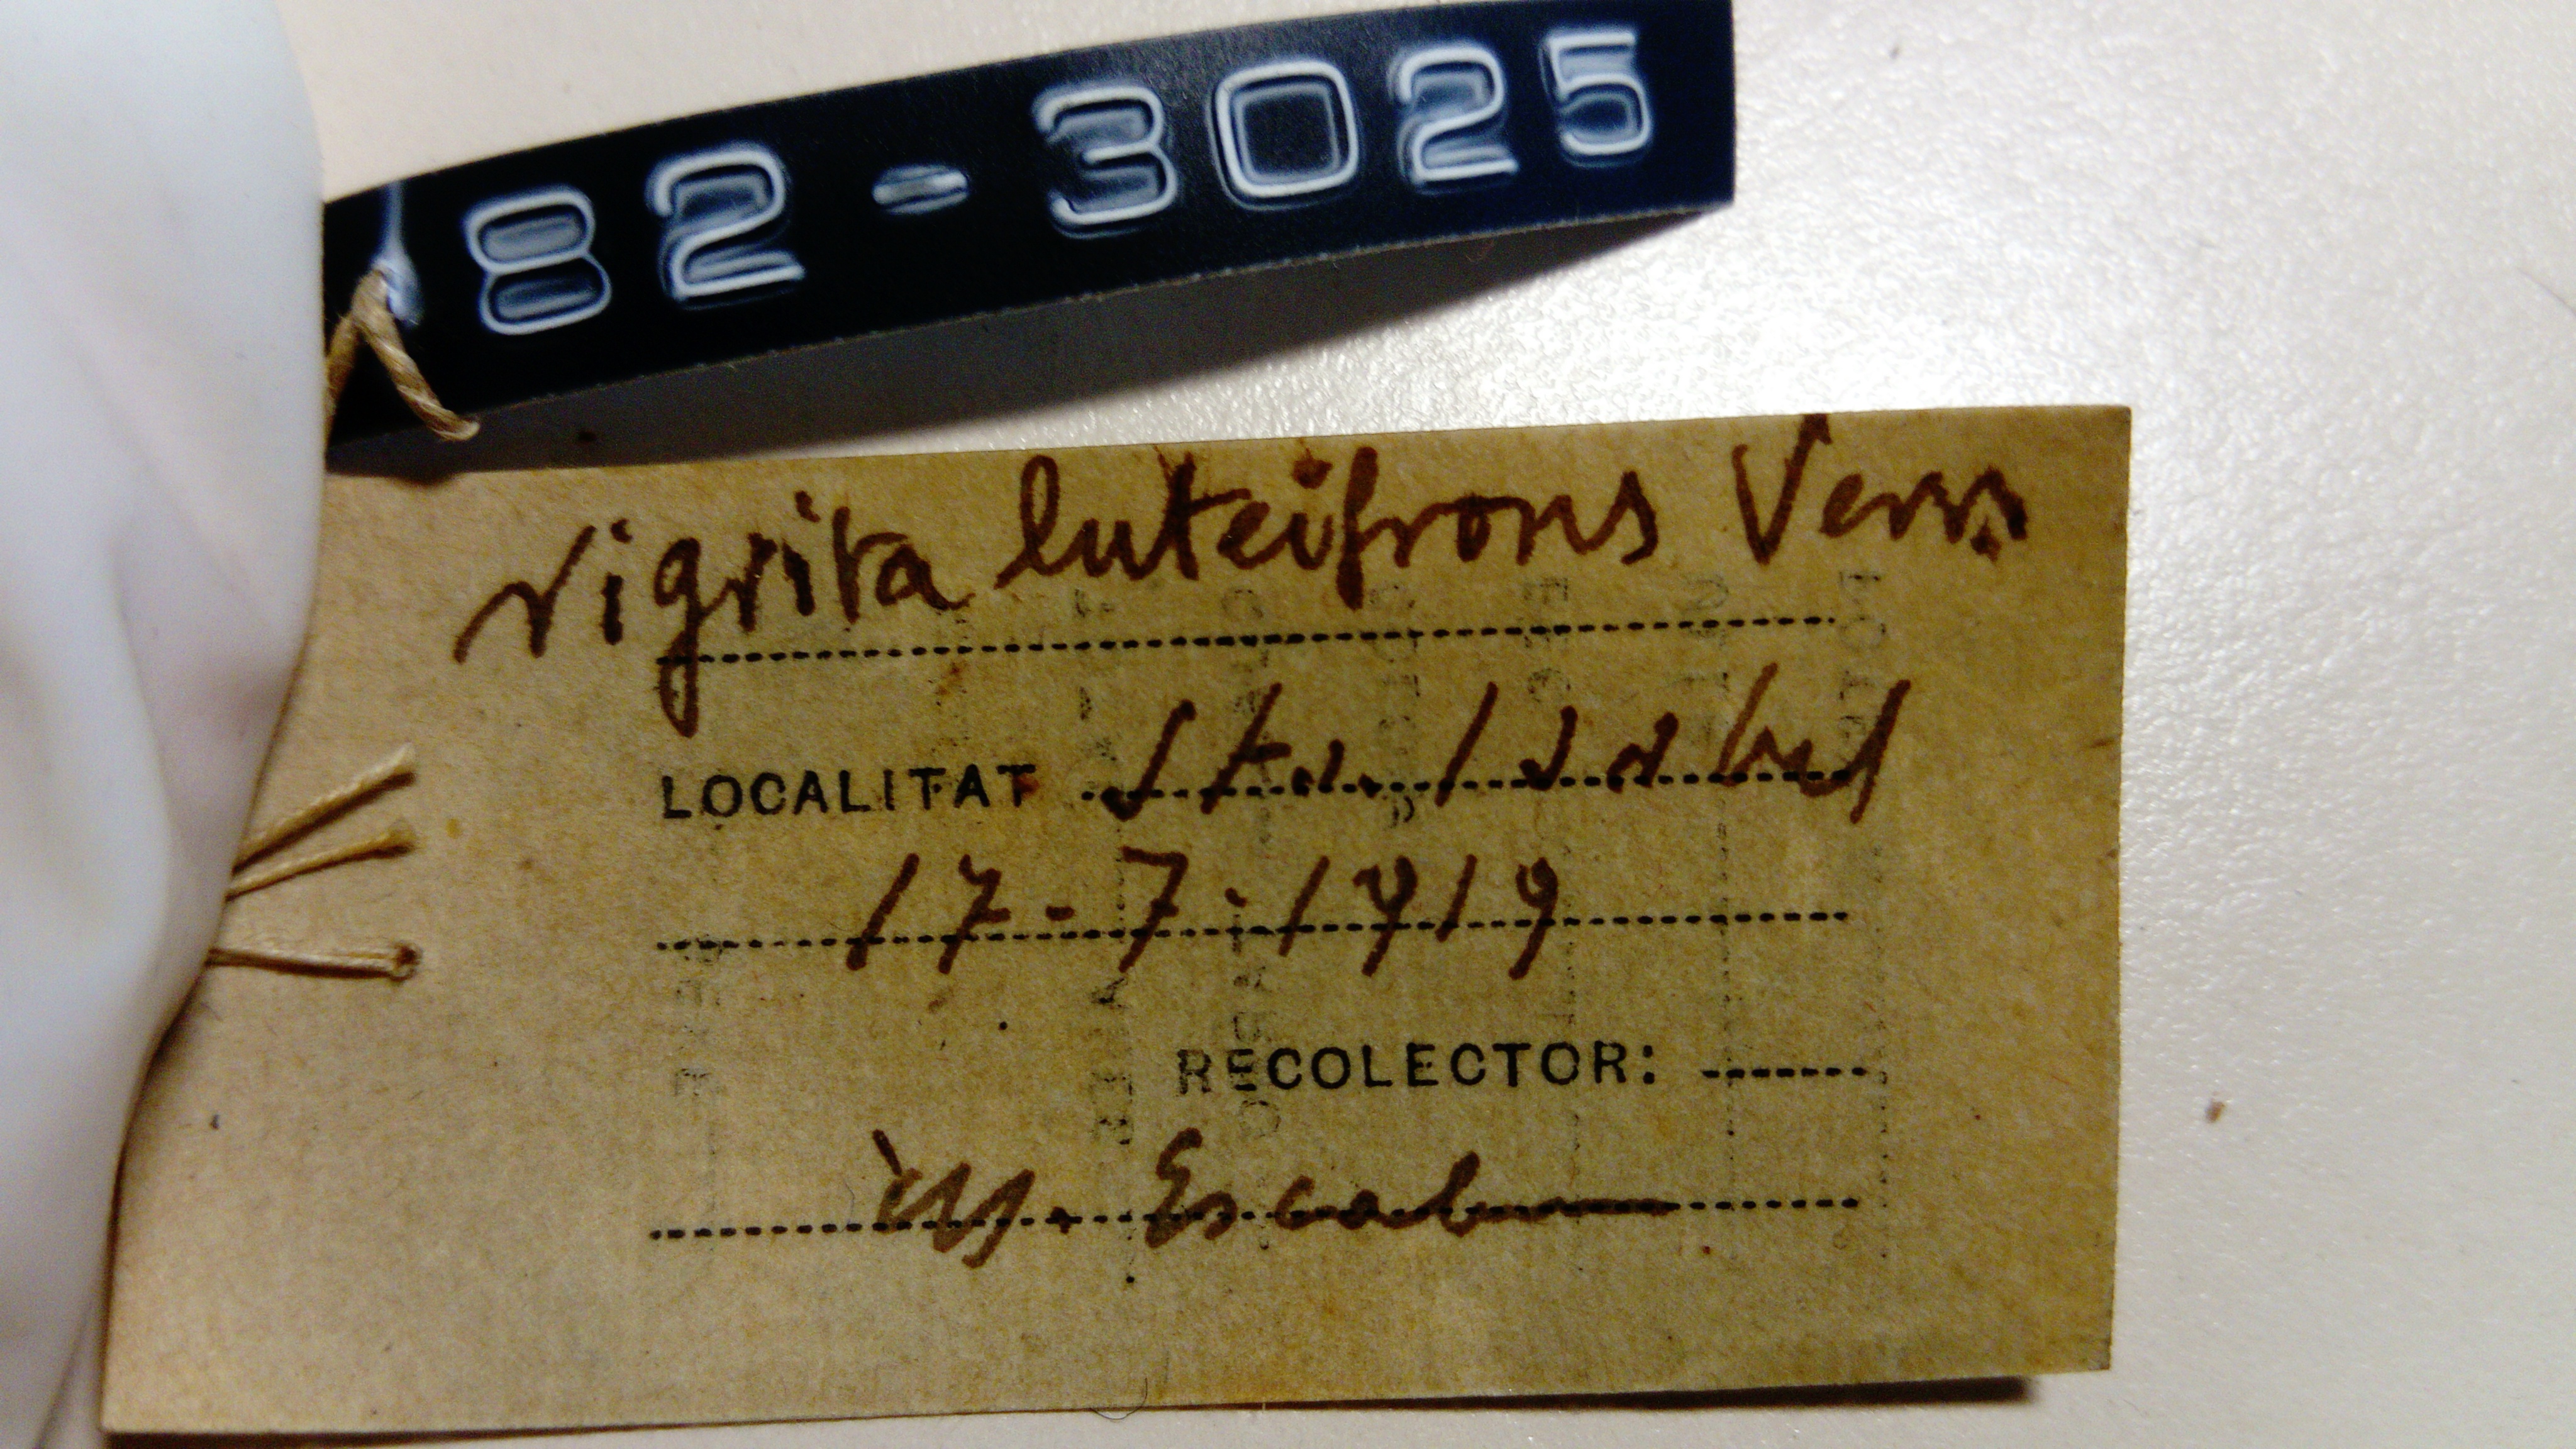 82-3025
Nigrita luteifrons Verr.
LOCALITAT Sta. Isabel
17-7-1919
RECOLECTOR:
M. Escalera